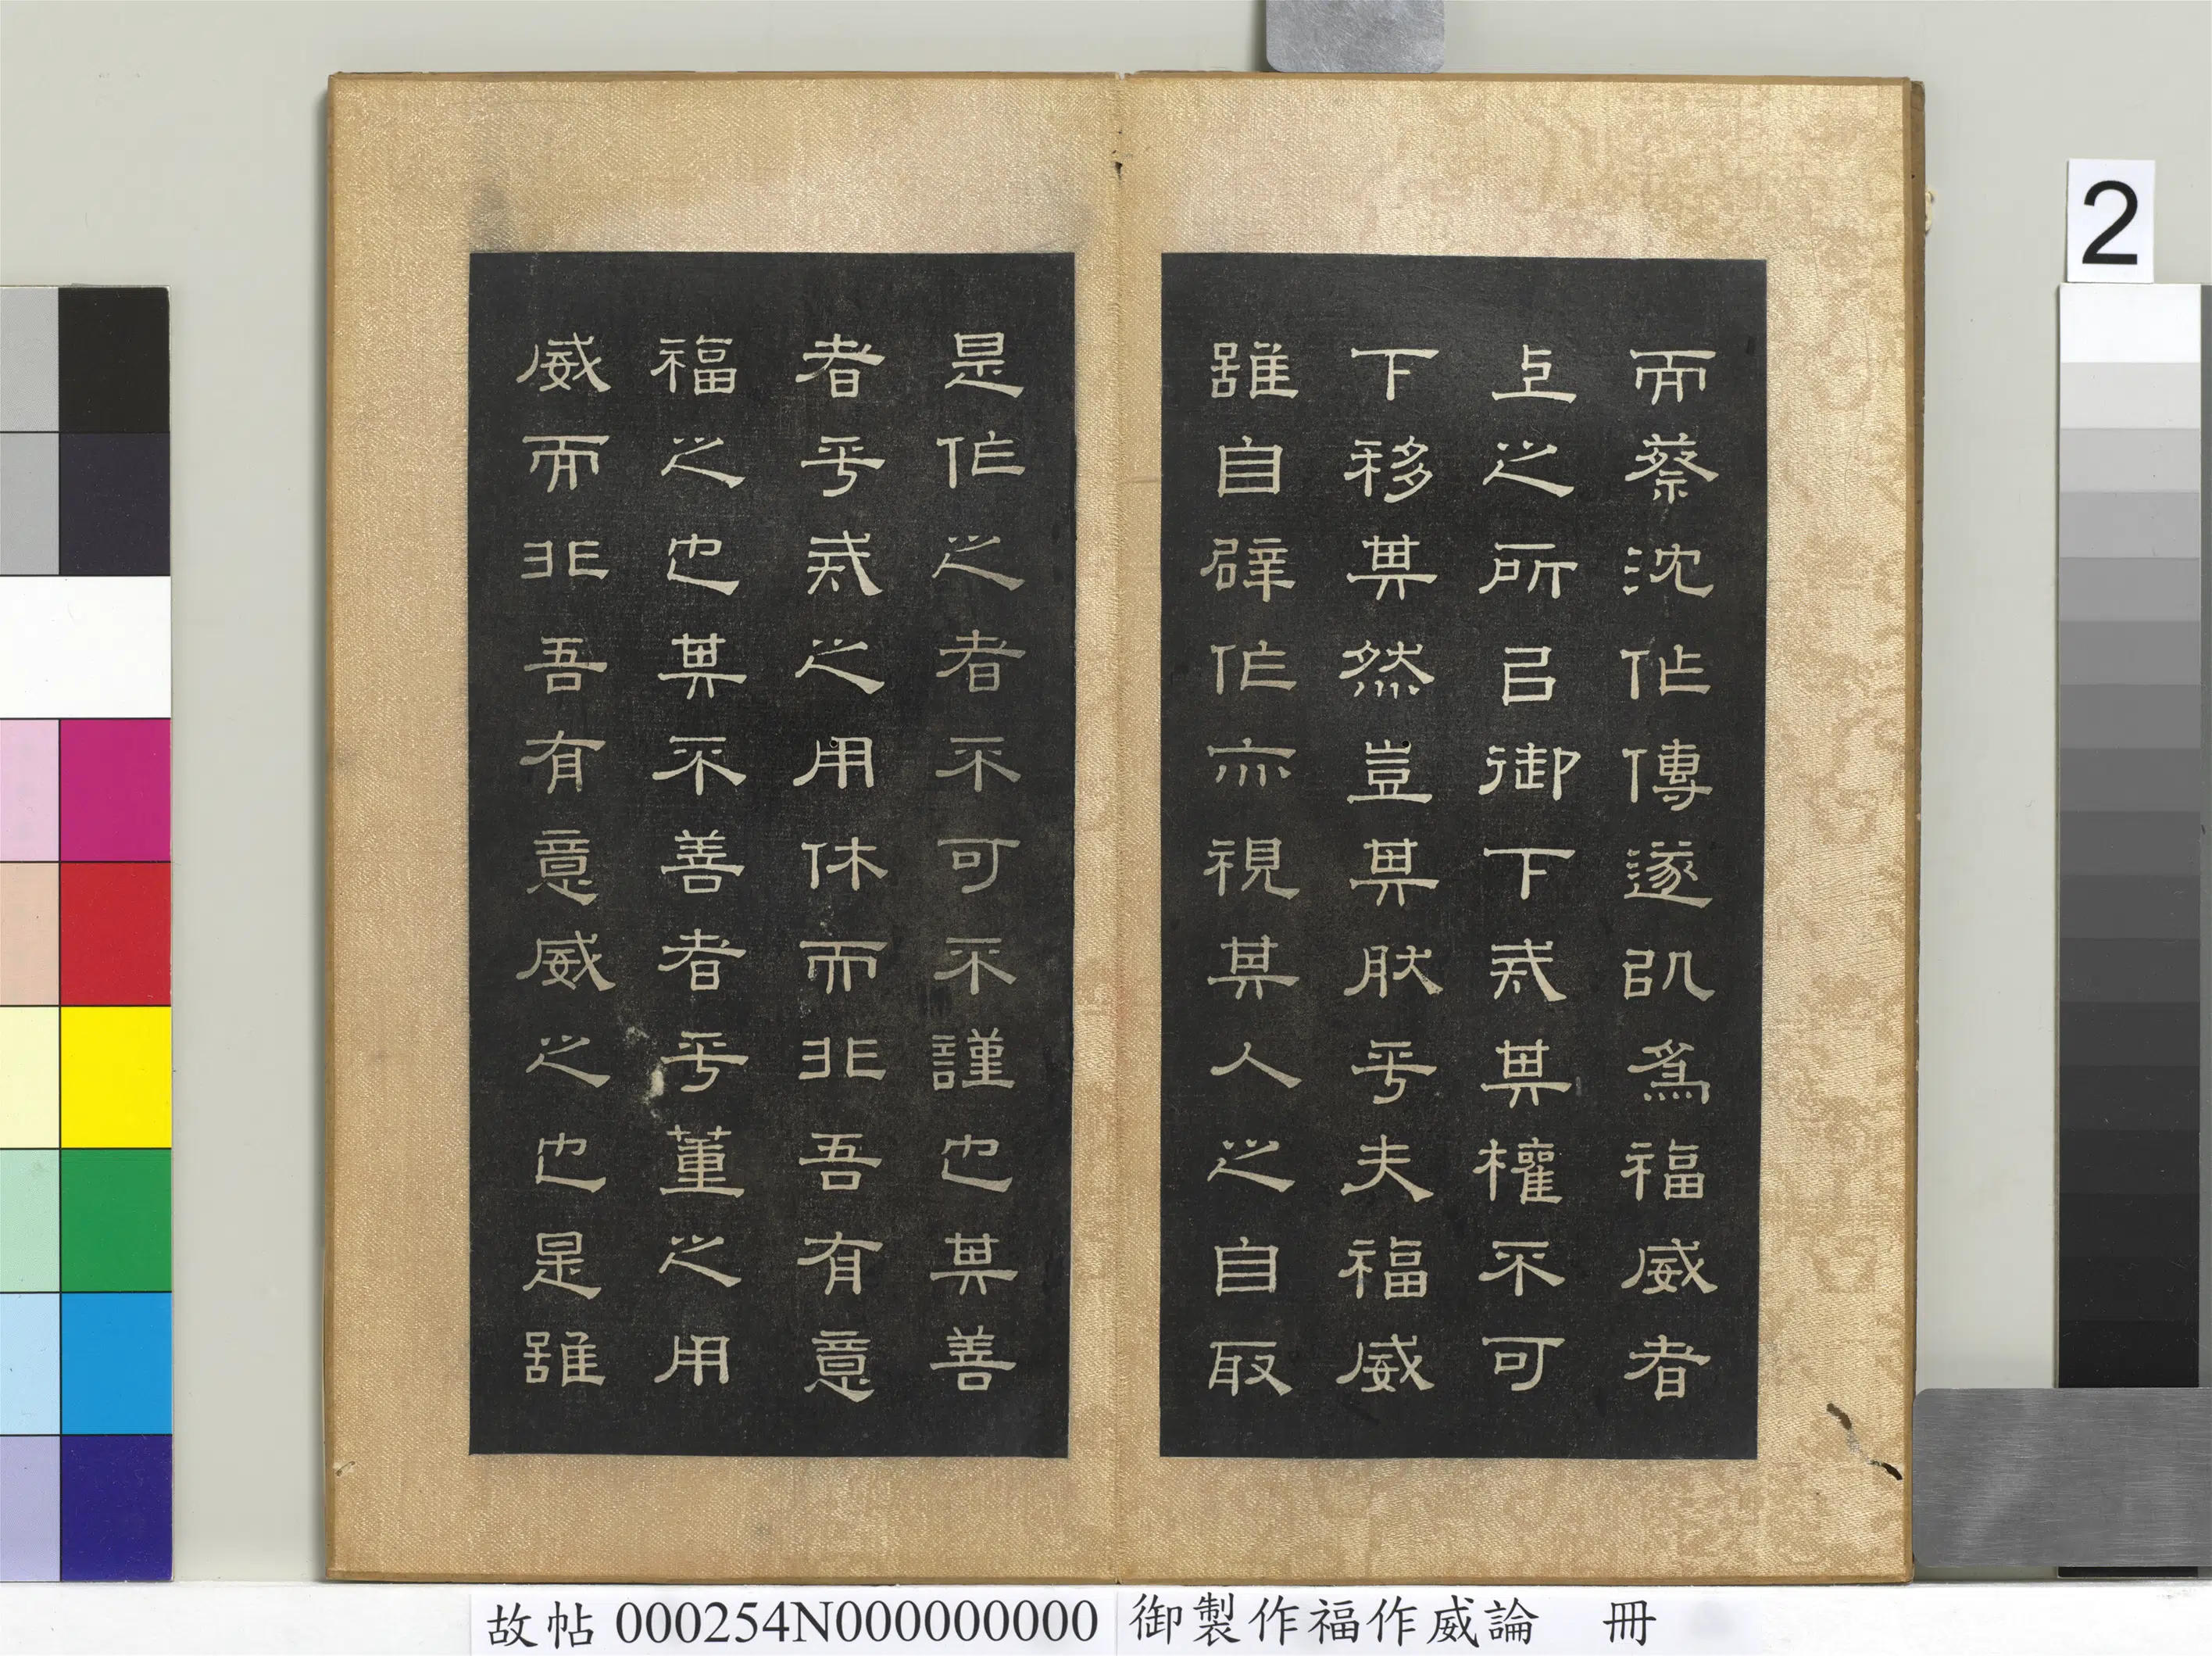 而蔡沈作傳遂以為福威者
上之所㠯御下戒其權不可
下移其然豈其肰乎夫福威
雖自辟作亦視其人之自取
是作之者不可不謹也其善
者乎戒之用休而非吾有意
福之也其不善者乎董之用
威而非吾有意威之也是雖
2
故帖 000254N000000000 御製作福作威論 冊